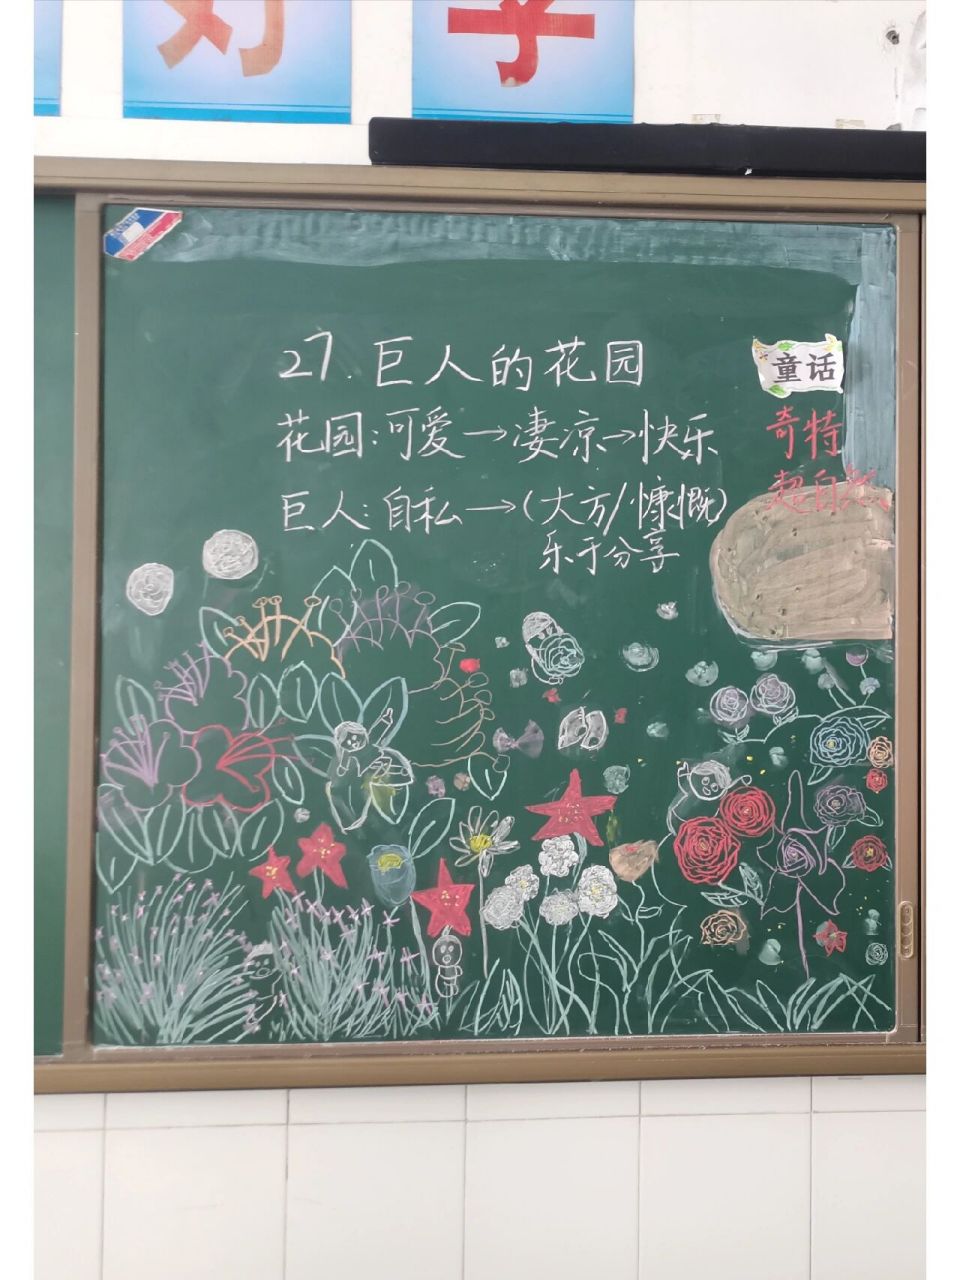 好 学
27. 巨人的花园
童话
花园:可爱→凄凉→快乐
奇特
超自然
巨人:自私→(大方/慷慨)
乐于分享